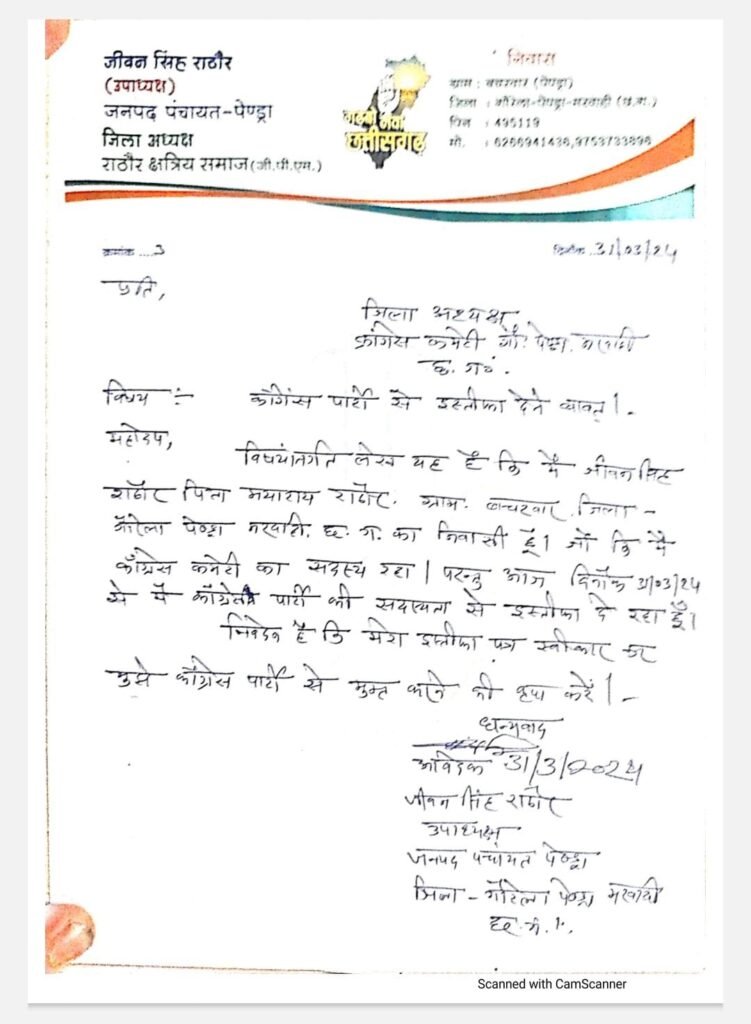 जीवन सिंह राठौर
(उपाध्यक्ष)
जनपद पंचायत-पेण्ड्रा
जिला अध्यक्ष
राठौर क्षत्रिय समाज(जी.पी.एम.)
गढ़बो नवा
छत्तीसगढ़
निवास
ग्राम : बचरवार (पेण्ड्रा)
जिला : गौरेला-पेण्ड्रा-मरवाही (छ.ग.)
पिन : 495119
मो. : 6266941436,9753733896
क्रमांक ....3
दिनांक 31/03/24
प्रति,
जिला अध्यक्ष
कांग्रेस कमेटी गौ. पेण्ड्रा. मरवाही
छ. ग.
विषय :- काँग्रेस पार्टी से इस्तीफा देने बाबत्।-
महोदय,
विषयांतर्गत लेख यह है कि मैं जीवन सिंह
राठौर पिता मयाराम राठौर. ग्राम. बचरवार जिला -
गौरेला पेण्ड्रा मरवाही. छ. ग. का निवासी हूँ। जो कि मैं
काँग्रेस कमेटी का सदस्य रहा। परन्तु आज दिनाँक 31/03/24
से मैं काँग्रेस पार्टी की सदस्यता से इस्तीफा दे रहा हूँ।
निवेदन है कि मेरा इस्तीफा पत्र स्वीकार कर
मुझे काँग्रेस पार्टी से मुक्त करने की कृपा करें।-
धन्यवाद
आवेदक 31/3/2024
जीवन सिंह राठौर
उपाध्यक्ष
जनपद पंचायत पेण्ड्रा
जिला - गौरेला पेण्ड्रा मरवाही
छ. ग.
Scanned with CamScanner